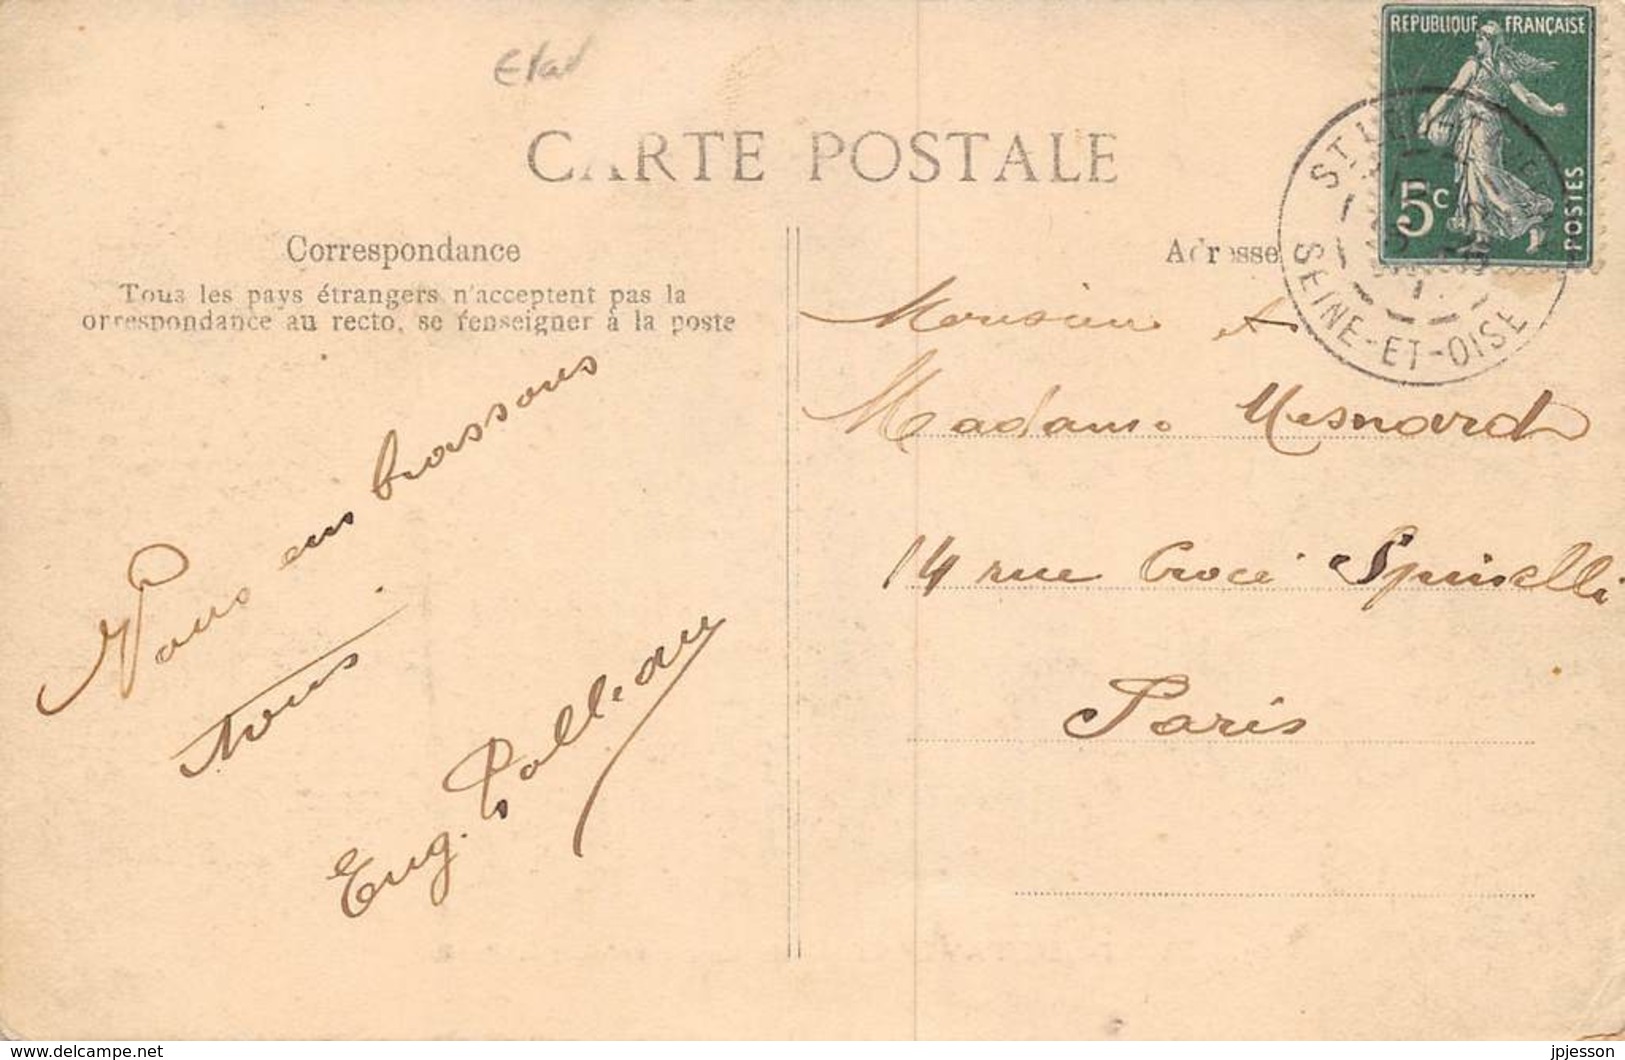 Etat
CARTE POSTALE
REPUBLIQUE FRANÇAISE
5c
POSTES
SEINE-ET-OISE
Correspondance
Tous les pays étrangers n'acceptent pas la
orrespondance au recto, se renseigner à la poste
Adresse
Nous embrassons
tous.
Eug.
Monsieur et
Madame Mesnard
14 rue Crocé Spinelli
Paris
www.delcampe.net
jpjesson